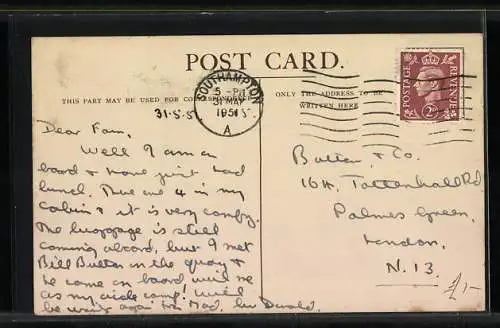 POST CARD.
THIS PART MAY BE USED FOR CORRESPONDENCE
ONLY THE ADDRESS TO BE
WRITTEN HERE
SOUTHAMPTON
5 - PM
31 MAY
1951
A
POSTAGE
REVENUE
31-5-51
Dear Fam,
Well I am on
board & have just had
lunch. There are 4 in my
cabin & it is very comfy.
The luggage is still
coming aboard, but I met
Bill Butten on the quay &
he came on board with me
as my aide camp! Will
be writing again from Mad.
Butten & Co.
164, Tottenhall Rd
Palmers Green,
London,
N. 13.
£/1-